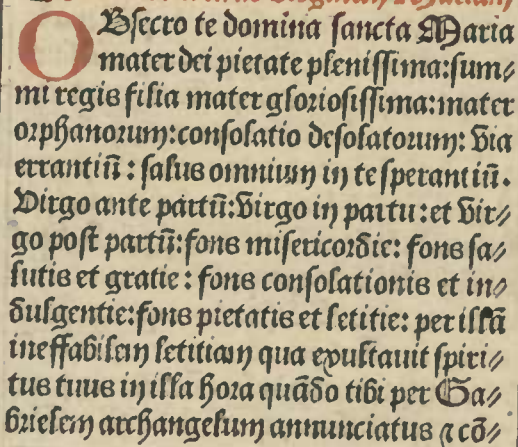 OBsecro te domina sancta Maria
mater dei pietate plenissima: sum⸗
mi regis filia mater gloriosissima: mater
orphanorum: consolatio desolatorum: via
errantiū : salus omnium in te sperantiū.
Virgo ante partū: virgo in partu : et vir⸗
go post partū: fons misericordie: fons sa⸗
lutis et gratie : fons consolationis et in⸗
dulgentie: fons pietatis et letitie: per illā
ineffabilem letitiam qua exultauit spiri⸗
tus tuus in illa hora quādo tibi per Ga⸗
brielem archangelum annunciatus ⁊ cō⸗